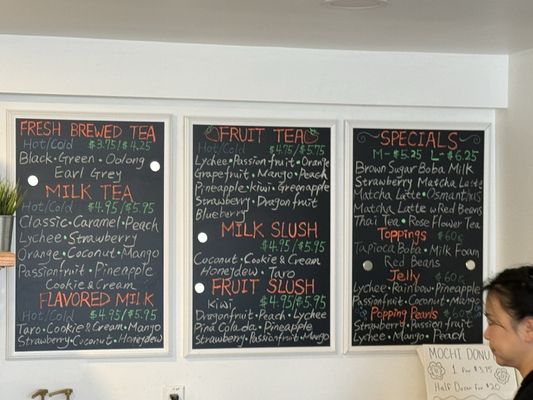 FRESH BREWED TEA
Hot/Cold $3.75/$4.25
Black • Green • Oolong
Earl Grey
MILK TEA
Hot/Cold $4.95/$5.95
Classic • Caramel • Peach
Lychee • Strawberry
Orange • Coconut • Mango
Passionfruit • Pineapple
Cookie & Cream
FLAVORED MILK
Hot/Cold $4.95/$5.95
Taro • Cookie & Cream • Mango
Strawberry • Coconut • Honeydew
FRUIT TEA
Hot/Cold $4.75/5.75
Lychee • Passion fruit • Orange
Grapefruit • Mango • Peach
Pineapple • kiwi • Greenapple
Strawberry • Dragonfruit
Blueberry
MILK SLUSH
$4.95/$5.95
Coconut • Cookie & Cream
Honeydew • Taro
FRUIT SLUSH
Kiwi $4.95/$5.95
Dragonfruit • Peach • Lychee
Pina Colada • Pineapple
Strawberry • Passionfruit • Mango
SPECIALS
M - $5.25 L - $6.25
Brown Sugar Boba Milk
Strawberry Matcha Latte
Matcha Latte • Osmanthus
Matcha Latte w Red Beans
Thai Tea • Rose Flower Tea
Toppings $60¢
Tapioca Boba • Milk Foam
Red Beans
Jelly $60¢
Lychee • Rainbow • Pineapple
Passionfruit • Coconut • Mango
Popping Pearls $60¢
Strawberry • Passion fruit
Lychee • Mango
MOCHI DONU
1 for $3.75
Half Dozen for $20